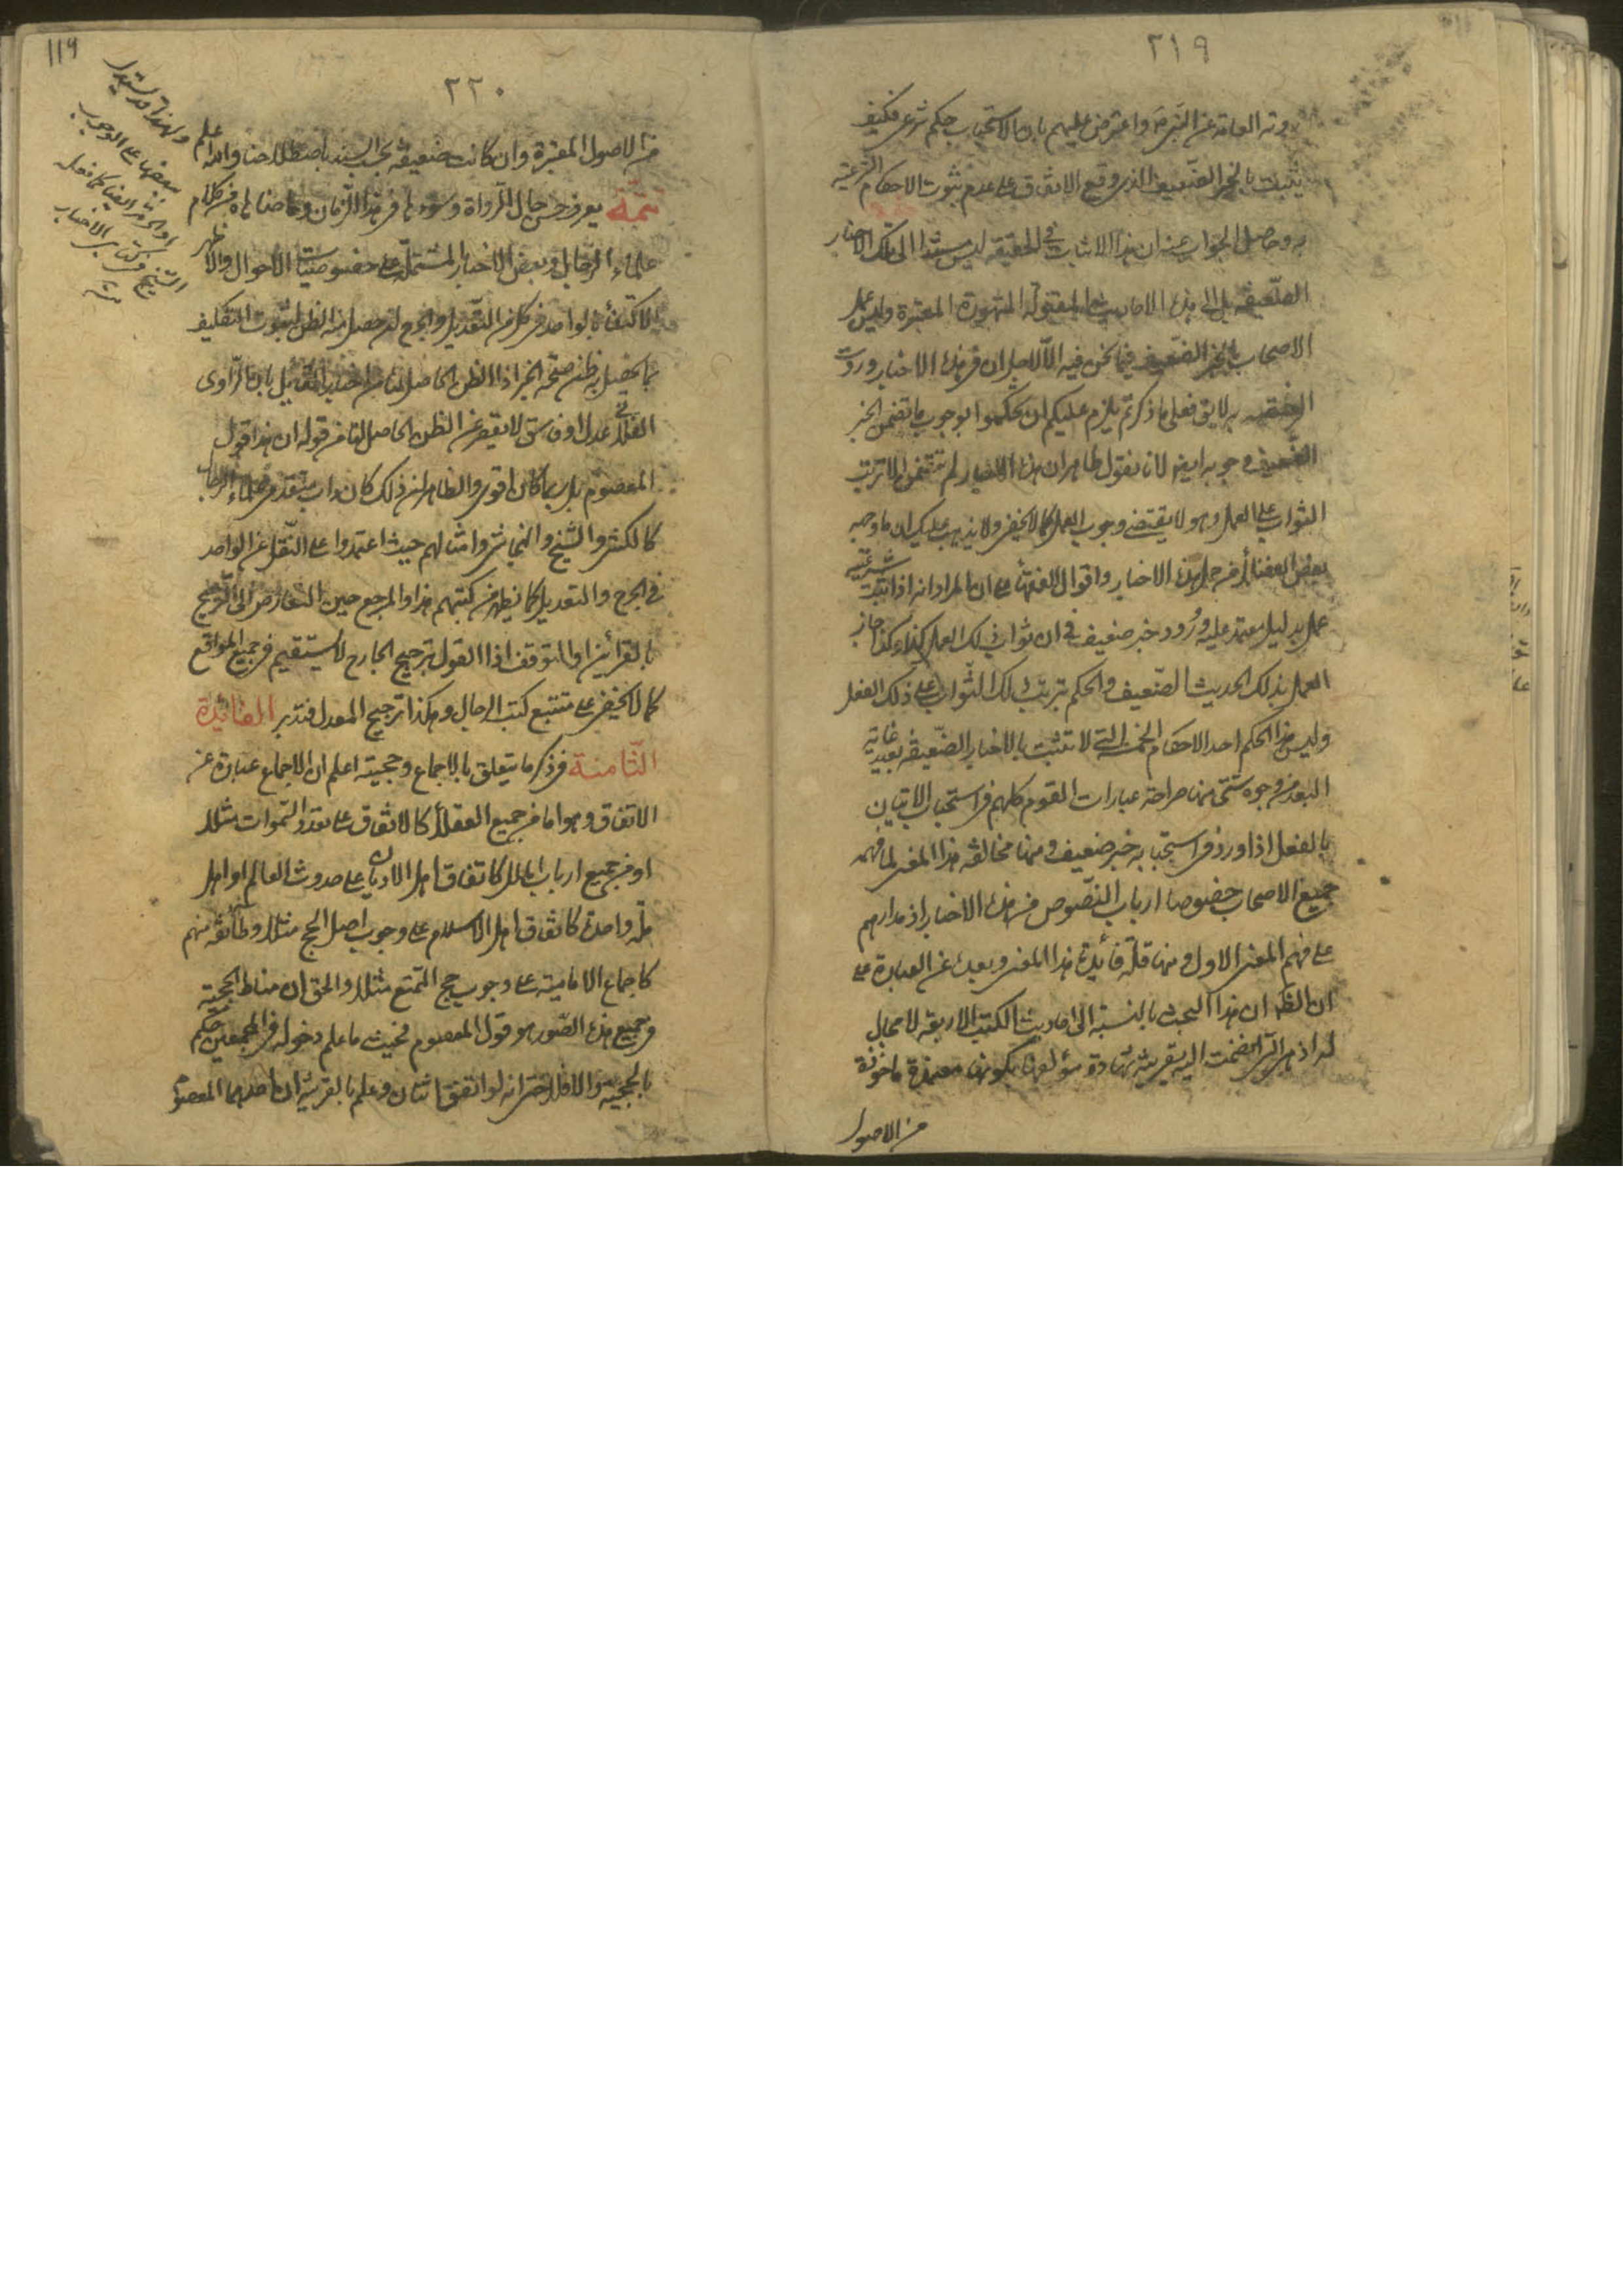 ٢١٩
وته العامة عن النبي ص واعترض عليهم بان الاستحباب حكم شرعي فكيف
يثبت بالخبر الضعيف الذي وقع الاتفاق على عدم ثبوت الاحكام الشرعية
به وحاصل الجواب عنه ان هذا الاثبات في الحقيقة ليس مستندا الى تلك الاخبار
الضعيفة بل الى هذه الاحاديث المقبولة المشهورة المعتبرة وليس عمل
الاصحاب بالخبر الضعيف فيما نحن فيه الا لاجل ان في هذه الاخبار وردت
به لا يق فعلى ما ذكرتم يلزم عليكم ان تحكموا بوجوب ما تضمن الخبر
الضعيف وجوبه ايضا لانا نقول ظاهر ان هذه الاخبار لم تتضمن الا ترتب
الثواب على العمل وهو لا يقتضي وجوب العمل كما لا يخفى ولا يذهب عليك ان ما وجه
بعض الفضلاء من حمل هذه الاخبار واقوال الفقهاء على ان المراد انه اذا ثبت شرعية
عمل بدليل معتمد عليه وورد خبر ضعيف في ان ثواب ذلك العمل كذا وكذا جاز
العمل بذلك الحديث الضعيف والحكم بترتب ذلك الثواب على ذلك الفعل
وليس هذا الحكم احد الاحكام الخمسة التي لا تثبت بالاخبار الضعيفة بعيد غاية
البعد من وجوه شتى منها صراحة عبارات القوم كلهم في استحباب الاتيان
بالفعل اذا ورد في استحبابه خبر ضعيف ومنها مخالفة هذا المعنى لما فهمه
جميع الاصحاب خصوصا ارباب النصوص من هذه الاخبار اذ مدارهم
على فهم المعنى الاول ومنها قلة فائدة هذا المعنى وبعده عن العبارة على
ان الظ ان هذا البحث بالنسبة الى احاديث الكتب الاربعة لا مجال
له اذ هي التي انضمت اليه قرينة شهادة مؤلفها بكونها معتمدة ماخوذة
من الاصول
١١٩
٢٢٠
من الاصول المعتبرة وان كانت ضعيفة بحسب السند باصطلاحنا والله اعلم
تتمة يعرف حسن حال الرواة وسوءها في هذا الزمان وما ضاهاه من كلام
علماء الرجال وبعض الاخبار المشتملة على خصوصيات الاحوال والاظهر
الاكتفاء بالواحد في كل من التعديل والجرح ان حصل منه الظن لثبوت التكليف
بما يحصل به ظن صحة الخبر اذ الظن الحاصل لنا من اخبار الثقة بان الراوي
الفلاني عدل او فاسق لا يقصر عن الظن الحاصل لنا من قوله ان هذا قول
المعصوم بل ربما كان اقوى والظاهر ان ذلك كان داب متقدمي علماء الرجال
كالكشي والشيخ والنجاشي وامثالهم حيث اعتمدوا على النقل عن الواحد
في الجرح والتعديل كما يظهر من كتبهم هذا والمرجع حين التعارض الى الترجيح
بالقرائن او التوقف اذ القول بترجيح الجارح لا يستقيم في جميع المواقع
كما لا يخفى على متتبع كتب الرجال وهكذا ترجيح المعدل فتدبر الفائدة
الثامنة في ذكر ما يتعلق بالاجماع وحجيته اعلم ان الاجماع عبارة عن
الاتفاق وهو اما من جميع العقلاء كالاتفاق على تعدد السموات مثلا
او من جميع ارباب الملل كاتفاق اهل الاديان على حدوث العالم او اهل
ملة واحدة كاتفاق اهل الاسلام على وجوب اصل الحج مثلا وطائفة منهم
كاجماع الامامية على وجوب حج التمتع مثلا والحق ان مناط الحجية
في جميع هذه الصور هو قول المعصوم فحيث ما علم دخوله في المجمعين حكم
بالحجية والا فلا حتى انه لو اتفق اثنان وعلم بالقرينة ان احدهما المعصوم
ولهذا قد يستدل
ببعضها على الوجوب
او الحرمة ايضا كما فعله
الشيخ في كتابي الاخبار
منه